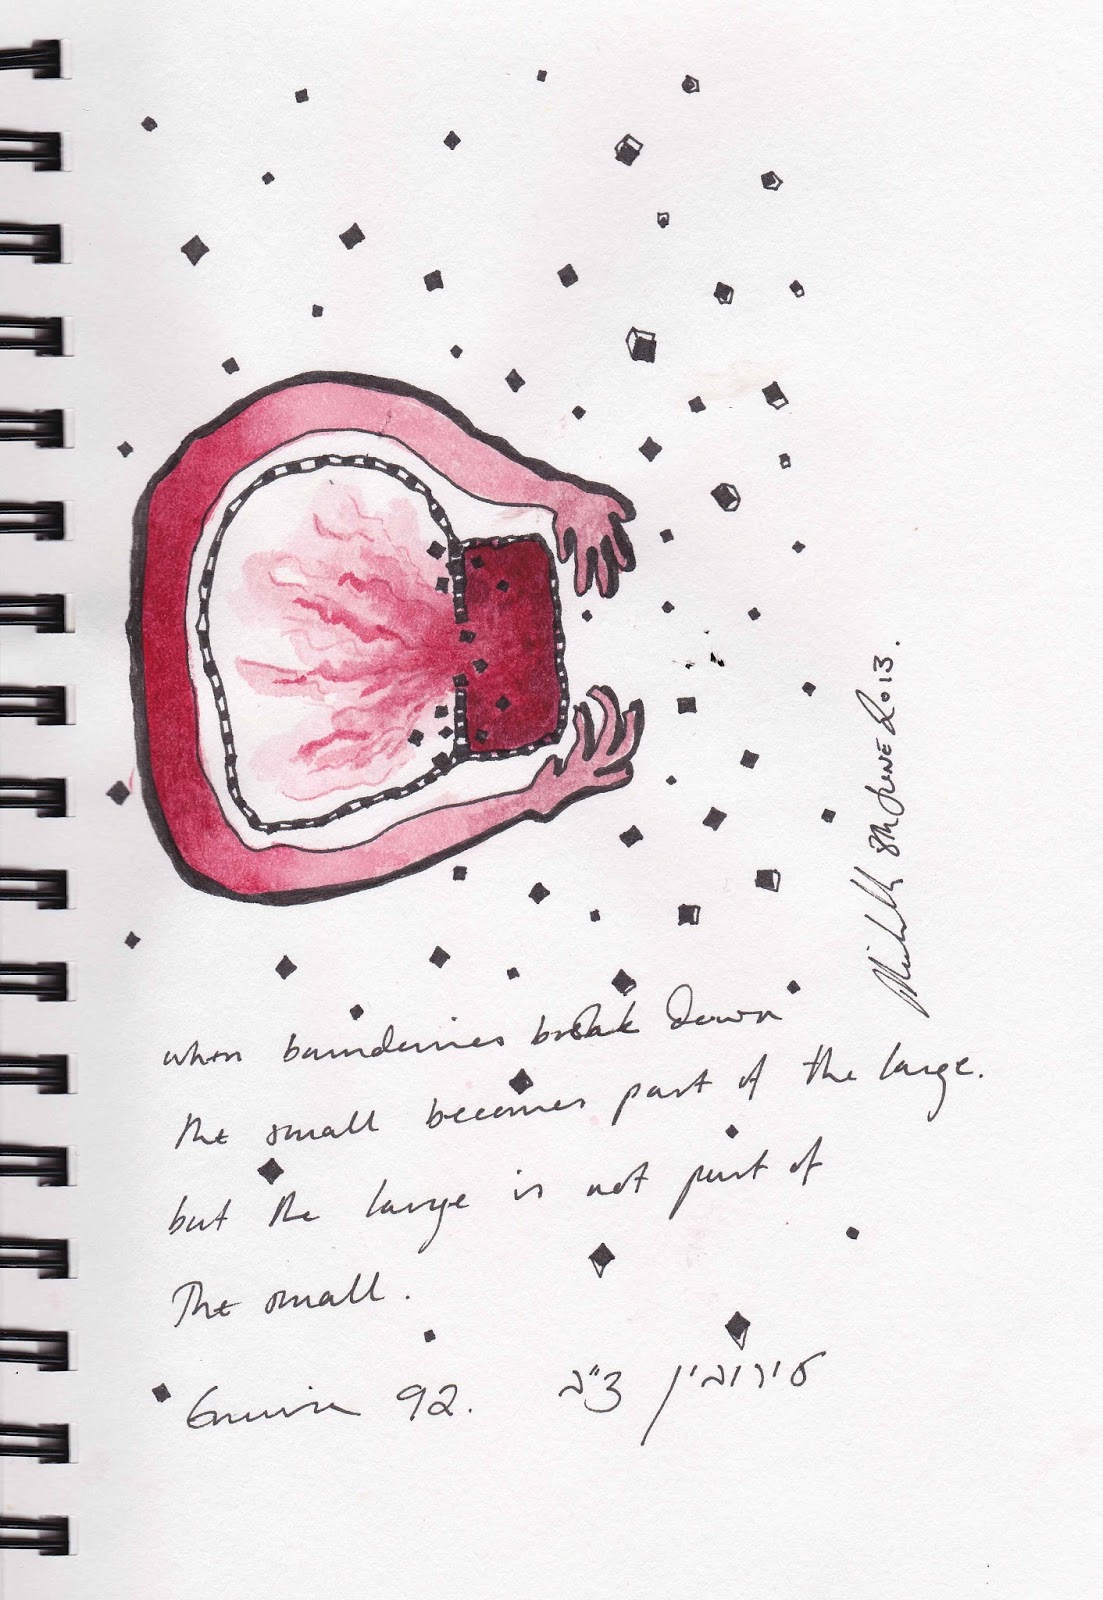 when boundaries break down
the small becomes part of the large.
but the large is not part of
the small.
Eruvin 92. עירובין צ"ב
8th June 2013.